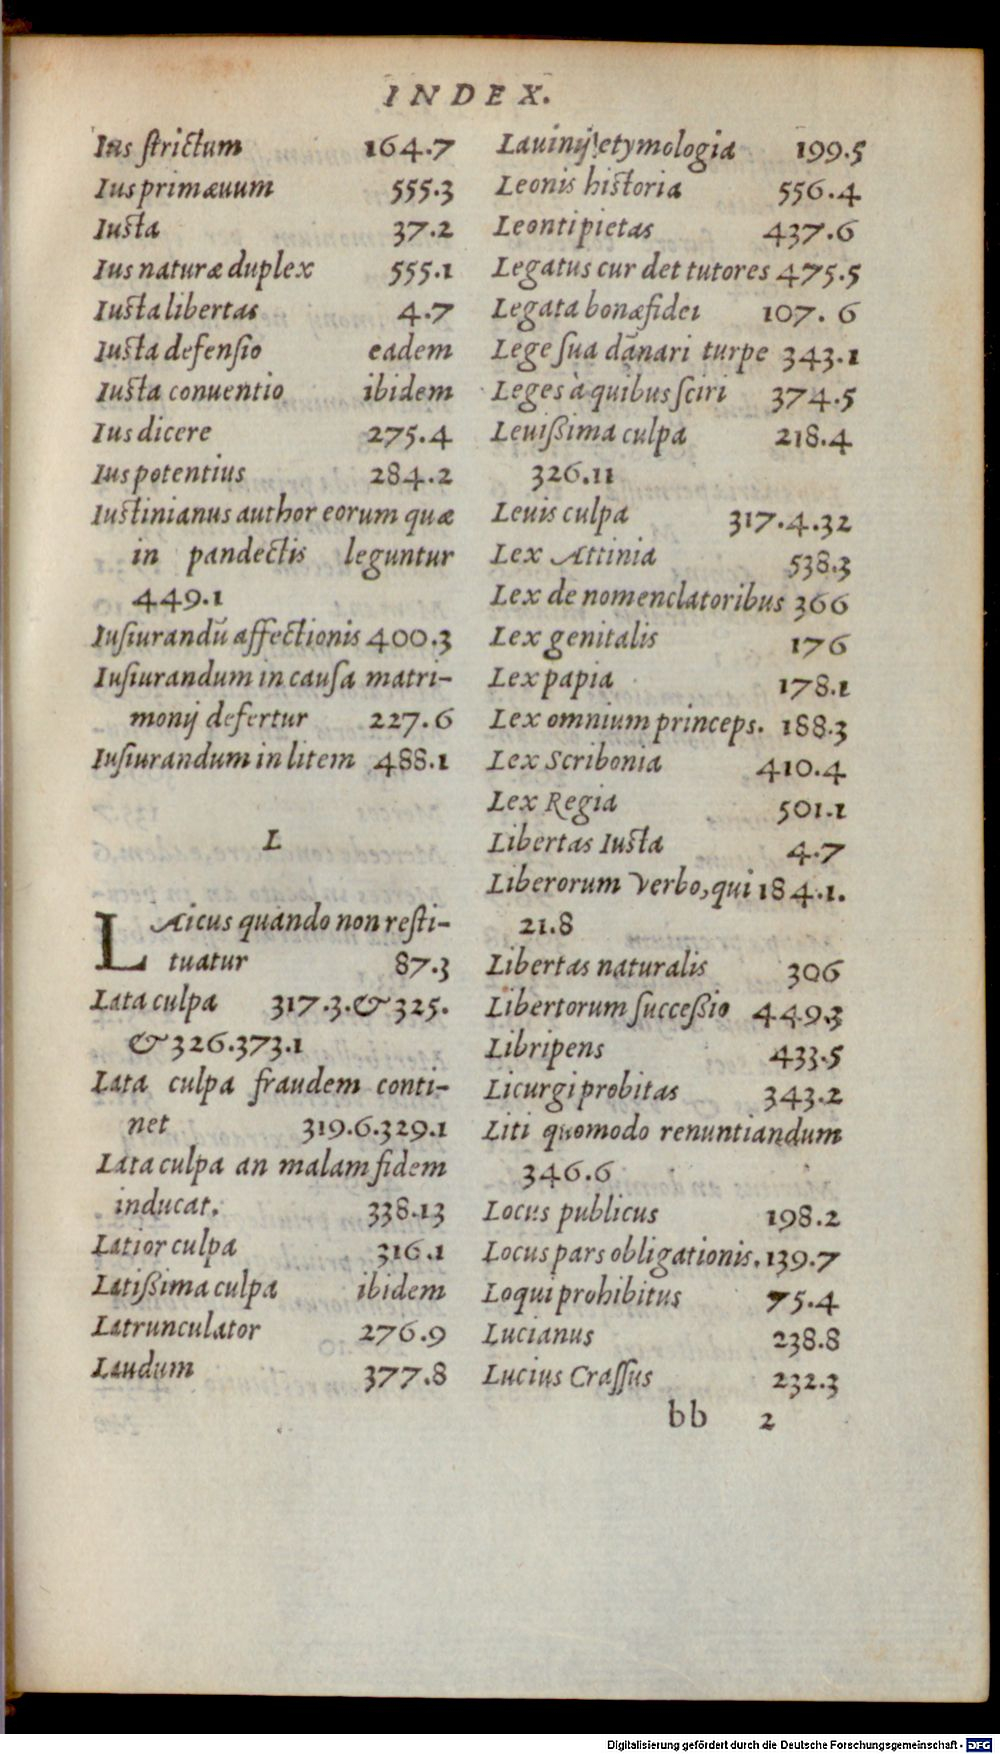 INDEX.
Ius strictum 164.7
Ius primæuum 555.3
Iusta 37.2
Ius naturæ duplex 555.1
Iusta libertas 4.7
Iusta defensio eadem
Iusta conuentio ibidem
Ius dicere 275.4
Ius potentius 284.2
Iustinianus author eorum quæ
in pandectis leguntur
449.1
Iusiurandū affectionis 400.3
Iusiurandum in causa matri-
monij defertur 227.6
Iusiurandum in litem 488.1
L
LAicus quando non resti-
tuatur 87.3
Lata culpa 317.3.& 325.
& 326.373.1
Lata culpa fraudem conti-
net 319.6.329.1
Lata culpa an malam fidem
inducat. 338.13
Latior culpa 316.1
Latißima culpa ibidem
Latrunculator 276.9
Laudum 377.8
Lauinij etymologia 199.5
Leonis historia 556.4
Leonti pietas 437.6
Legatus cur det tutores 475.5
Legata bonæ fidei 107. 6
Lege sua dānari turpe 343.1
Leges à quibus sciri 374.5
Leuißima culpa 218.4
326.11
Leuis culpa 317.4.32
Lex Attinia 538.3
Lex de nomenclatoribus 366
Lex genitalis 176
Lex papia 178.1
Lex omnium princeps. 188.3
Lex Scribonia 410.4
Lex Regia 501.1
Libertas Iusta 4.7
Liberorum verbo, qui 184.1.
21.8
Libertas naturalis 306
Libertorum succeßio 449.3
Libripens 433.5
Licurgi probitas 343.2
Liti quomodo renuntiandum
346.6
Locus publicus 198.2
Locus pars obligationis. 139.7
Loqui prohibitus 75.4
Lucianus 238.8
Lucius Crassus 232.3
bb 2
Digitalisierung gefördert durch die Deutsche Forschungsgemeinschaft - DFG